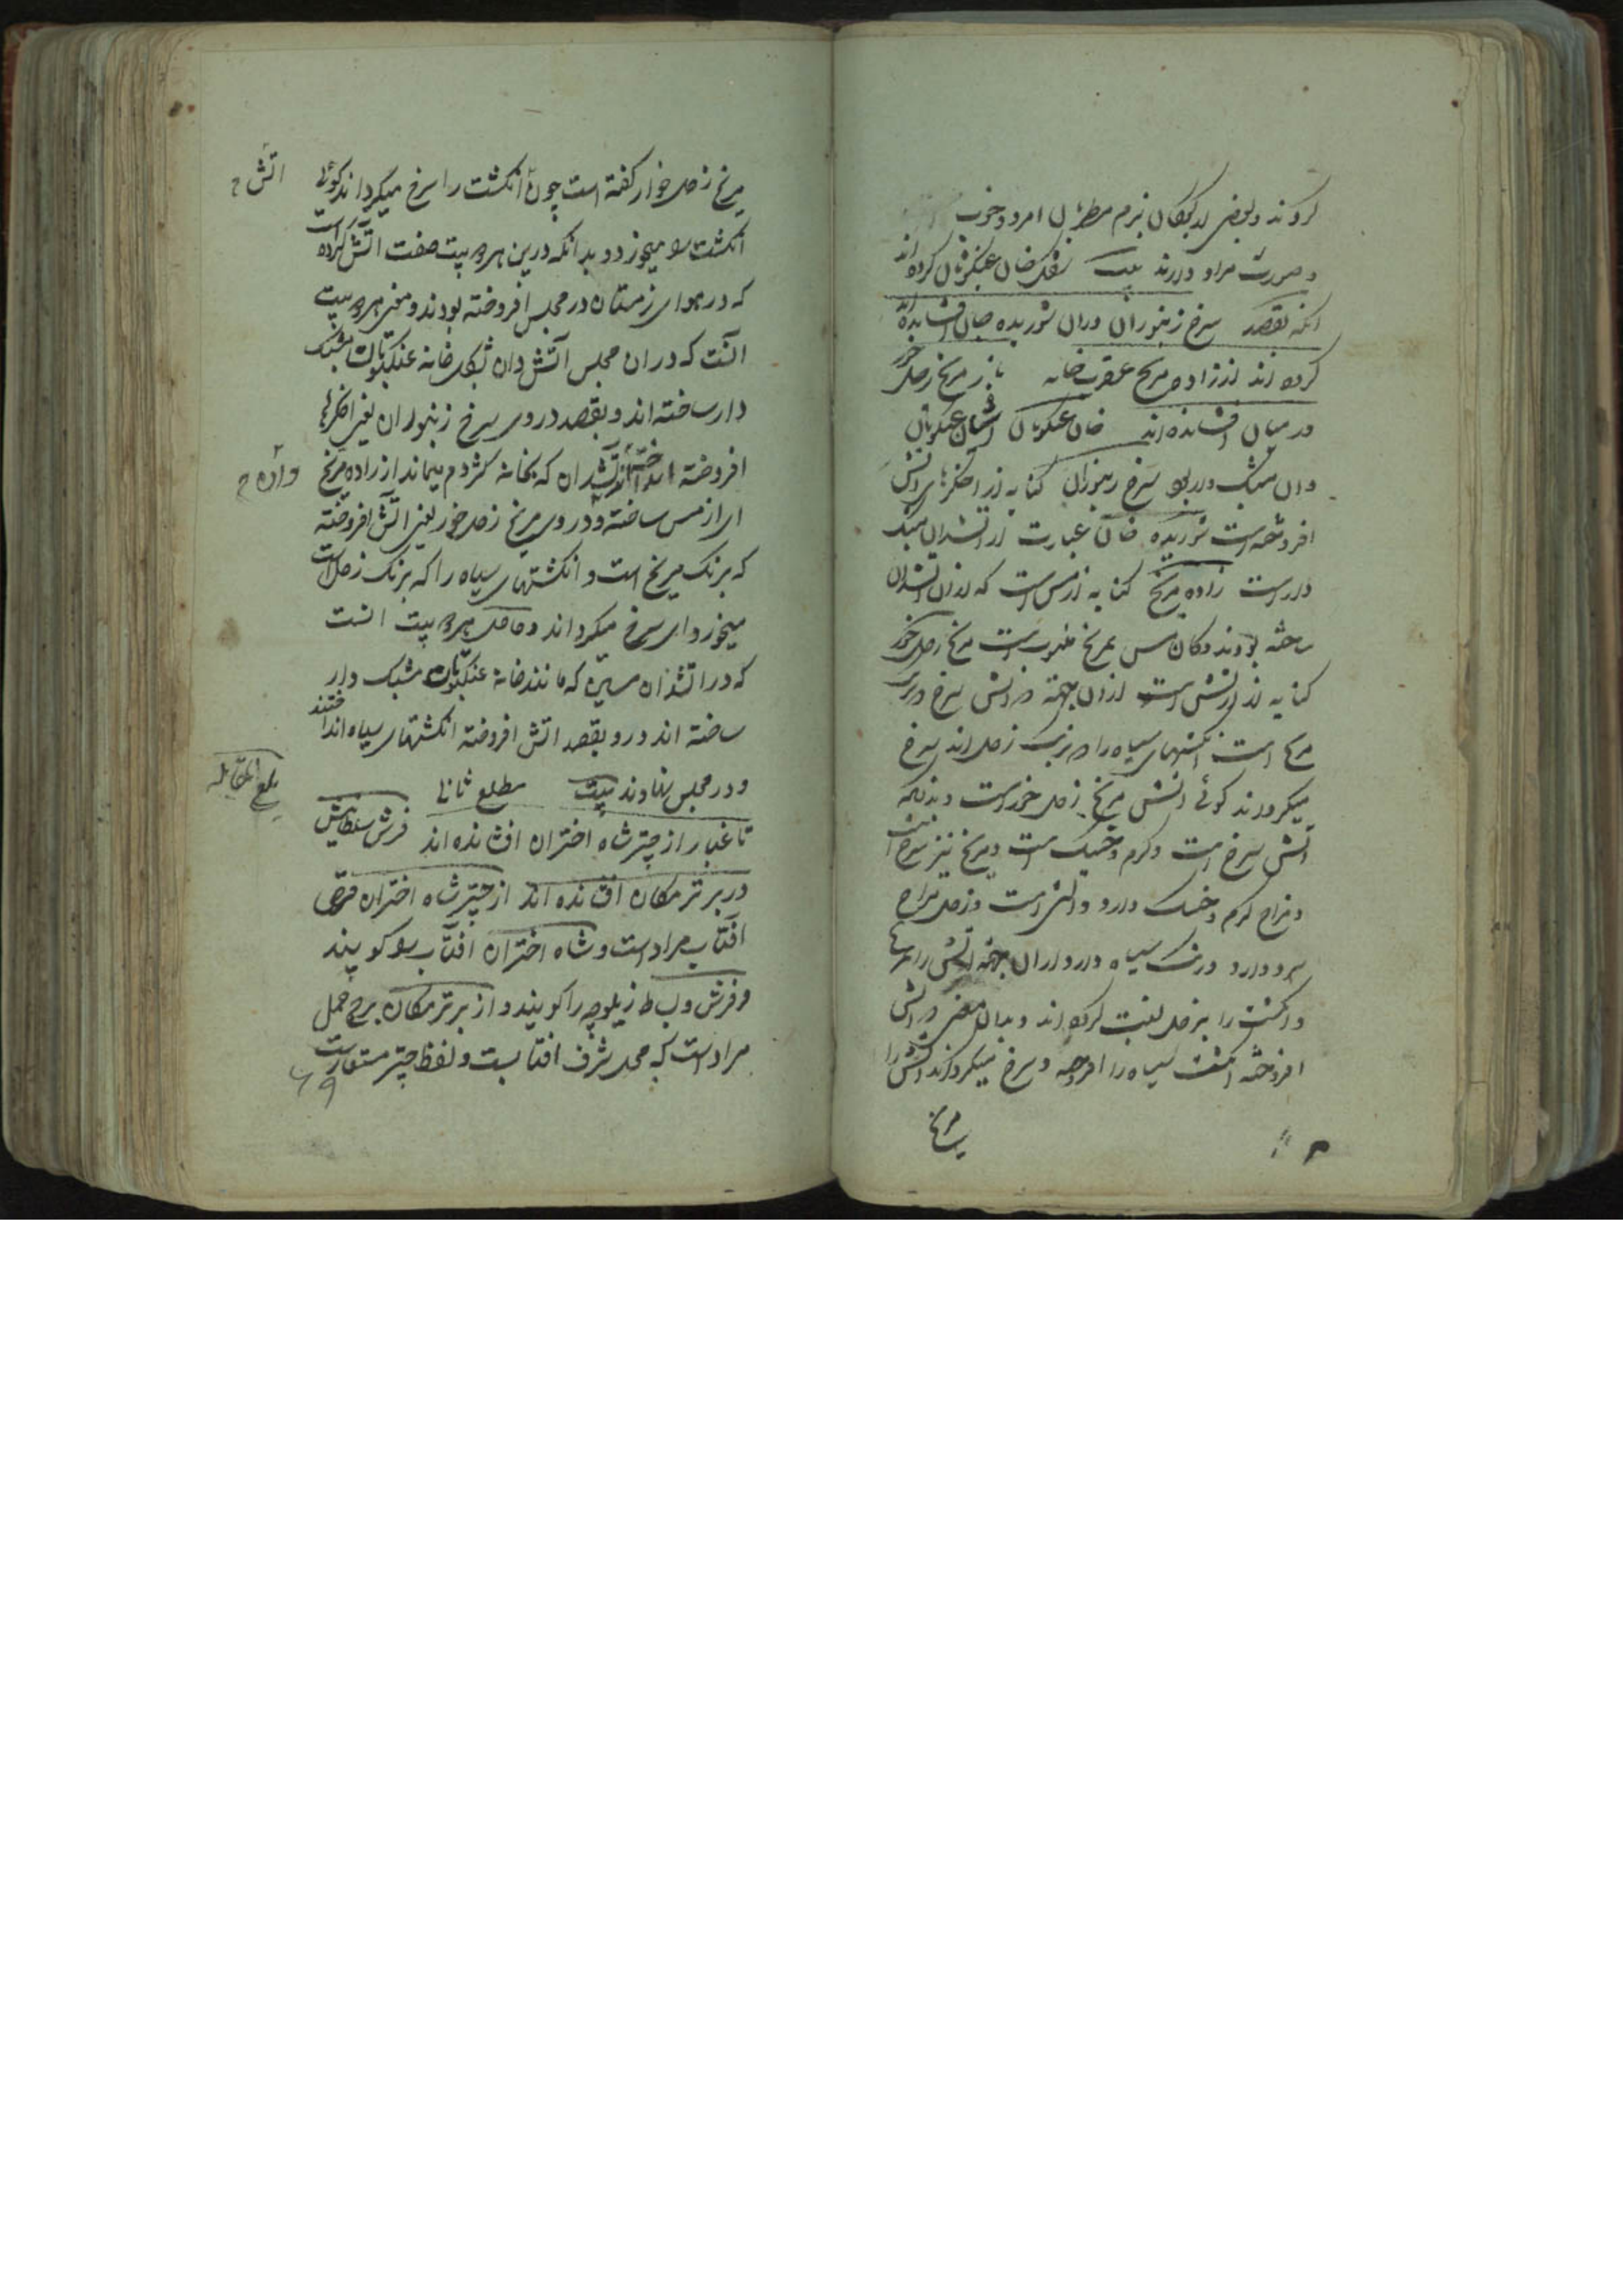 کردند و بعضی از کبکان بزم مطربان امرد و خوب
و صورت مراد دارند بیت شکل خان عنکبوتان کرده اند
انکه بقصد سرخ زنبوران دران شوریده خان افشانده اند
کرده اند از زاده مریخ عقرب خانه باز مریخ زحل خور
در میان افشانده اند خان عنکبوتان آشیان عنکبوتان
و ان مشبک دار بود سرخ زنبوران کنایه از اخکرهای آتش
افروخته است شوریده خان عبارت از آتشدان مشبک
دار است زاده مریخ کنایه از مس است که از ان آتشدان
ساخته بودند و کان مس بمریخ منسوب است مریخ زحل خور
کنایه از آتش است ازان جهة که آتش سرخ و برنک
مریخ است انکشتهای سیاه را که برنک زحل اند سرخ
میکرداند کوئی آتش مریخ زحل خور است و بدانکه
آتش سرخ است و کرم و خشک است و مریخ نیز سرخ است
و مزاج کرم و خشک دارد و آتشی است و زحل مزاج
سرد دارد و رنک سیاه دارد ازان جهة آتش را بمریخ
و انکشت را بزحل نسبت کرده اند و بدان معنی که آتش
افروخته انکشت سیاه را افروخته و سرخ میکرداند آتش را
مریخ
مریخ زحل خوار کفته است چون انکشت را سرخ میکرداند کوئی
آتش
انکشت را میخورد و بدانکه درین هر دو بیت صفت آتش کرده است
که در هوای زمستان در مجلس افروخته بودند و معنی هر دو بیت
آنست که دران مجلس آتش دان بشکل خانه عنکبوتان مشبک
دار ساخته اند و بقصد در وی سرخ زنبوران یعنی اخکرهای
افروخته انداخته اند آتشدان که بخانه کژدم میماند از زاده مریخ
ای از مس ساخته و در وی مریخ زحل خور یعنی آتش افروخته
که برنک مریخ است و انکشتهای سیاه را که برنک زحل است
میخورد ای سرخ میکرداند و حاصل هر دو بیت آنست
که در آتشدان مسین که مانند خانه عنکبوتان مشبک دار
ساخته اند در و بقصد آتش افروخته انکشتهای سیاه انداختند
و در مجلس نهادند بیت مطلع ثانی
تا غبار از چتر شاه اختران افشانده اند فرش سلطانیش
در برتر مکان افشانده اند از چتر شاه اختران قرص
آفتاب مراد است و شاه اختران آفتاب را کویند
و فرش و بساط زیلوچه را کویند و از برتر مکان برج حمل
مراد است که محل شرف آفتابست و لفظ چتر مستعار است